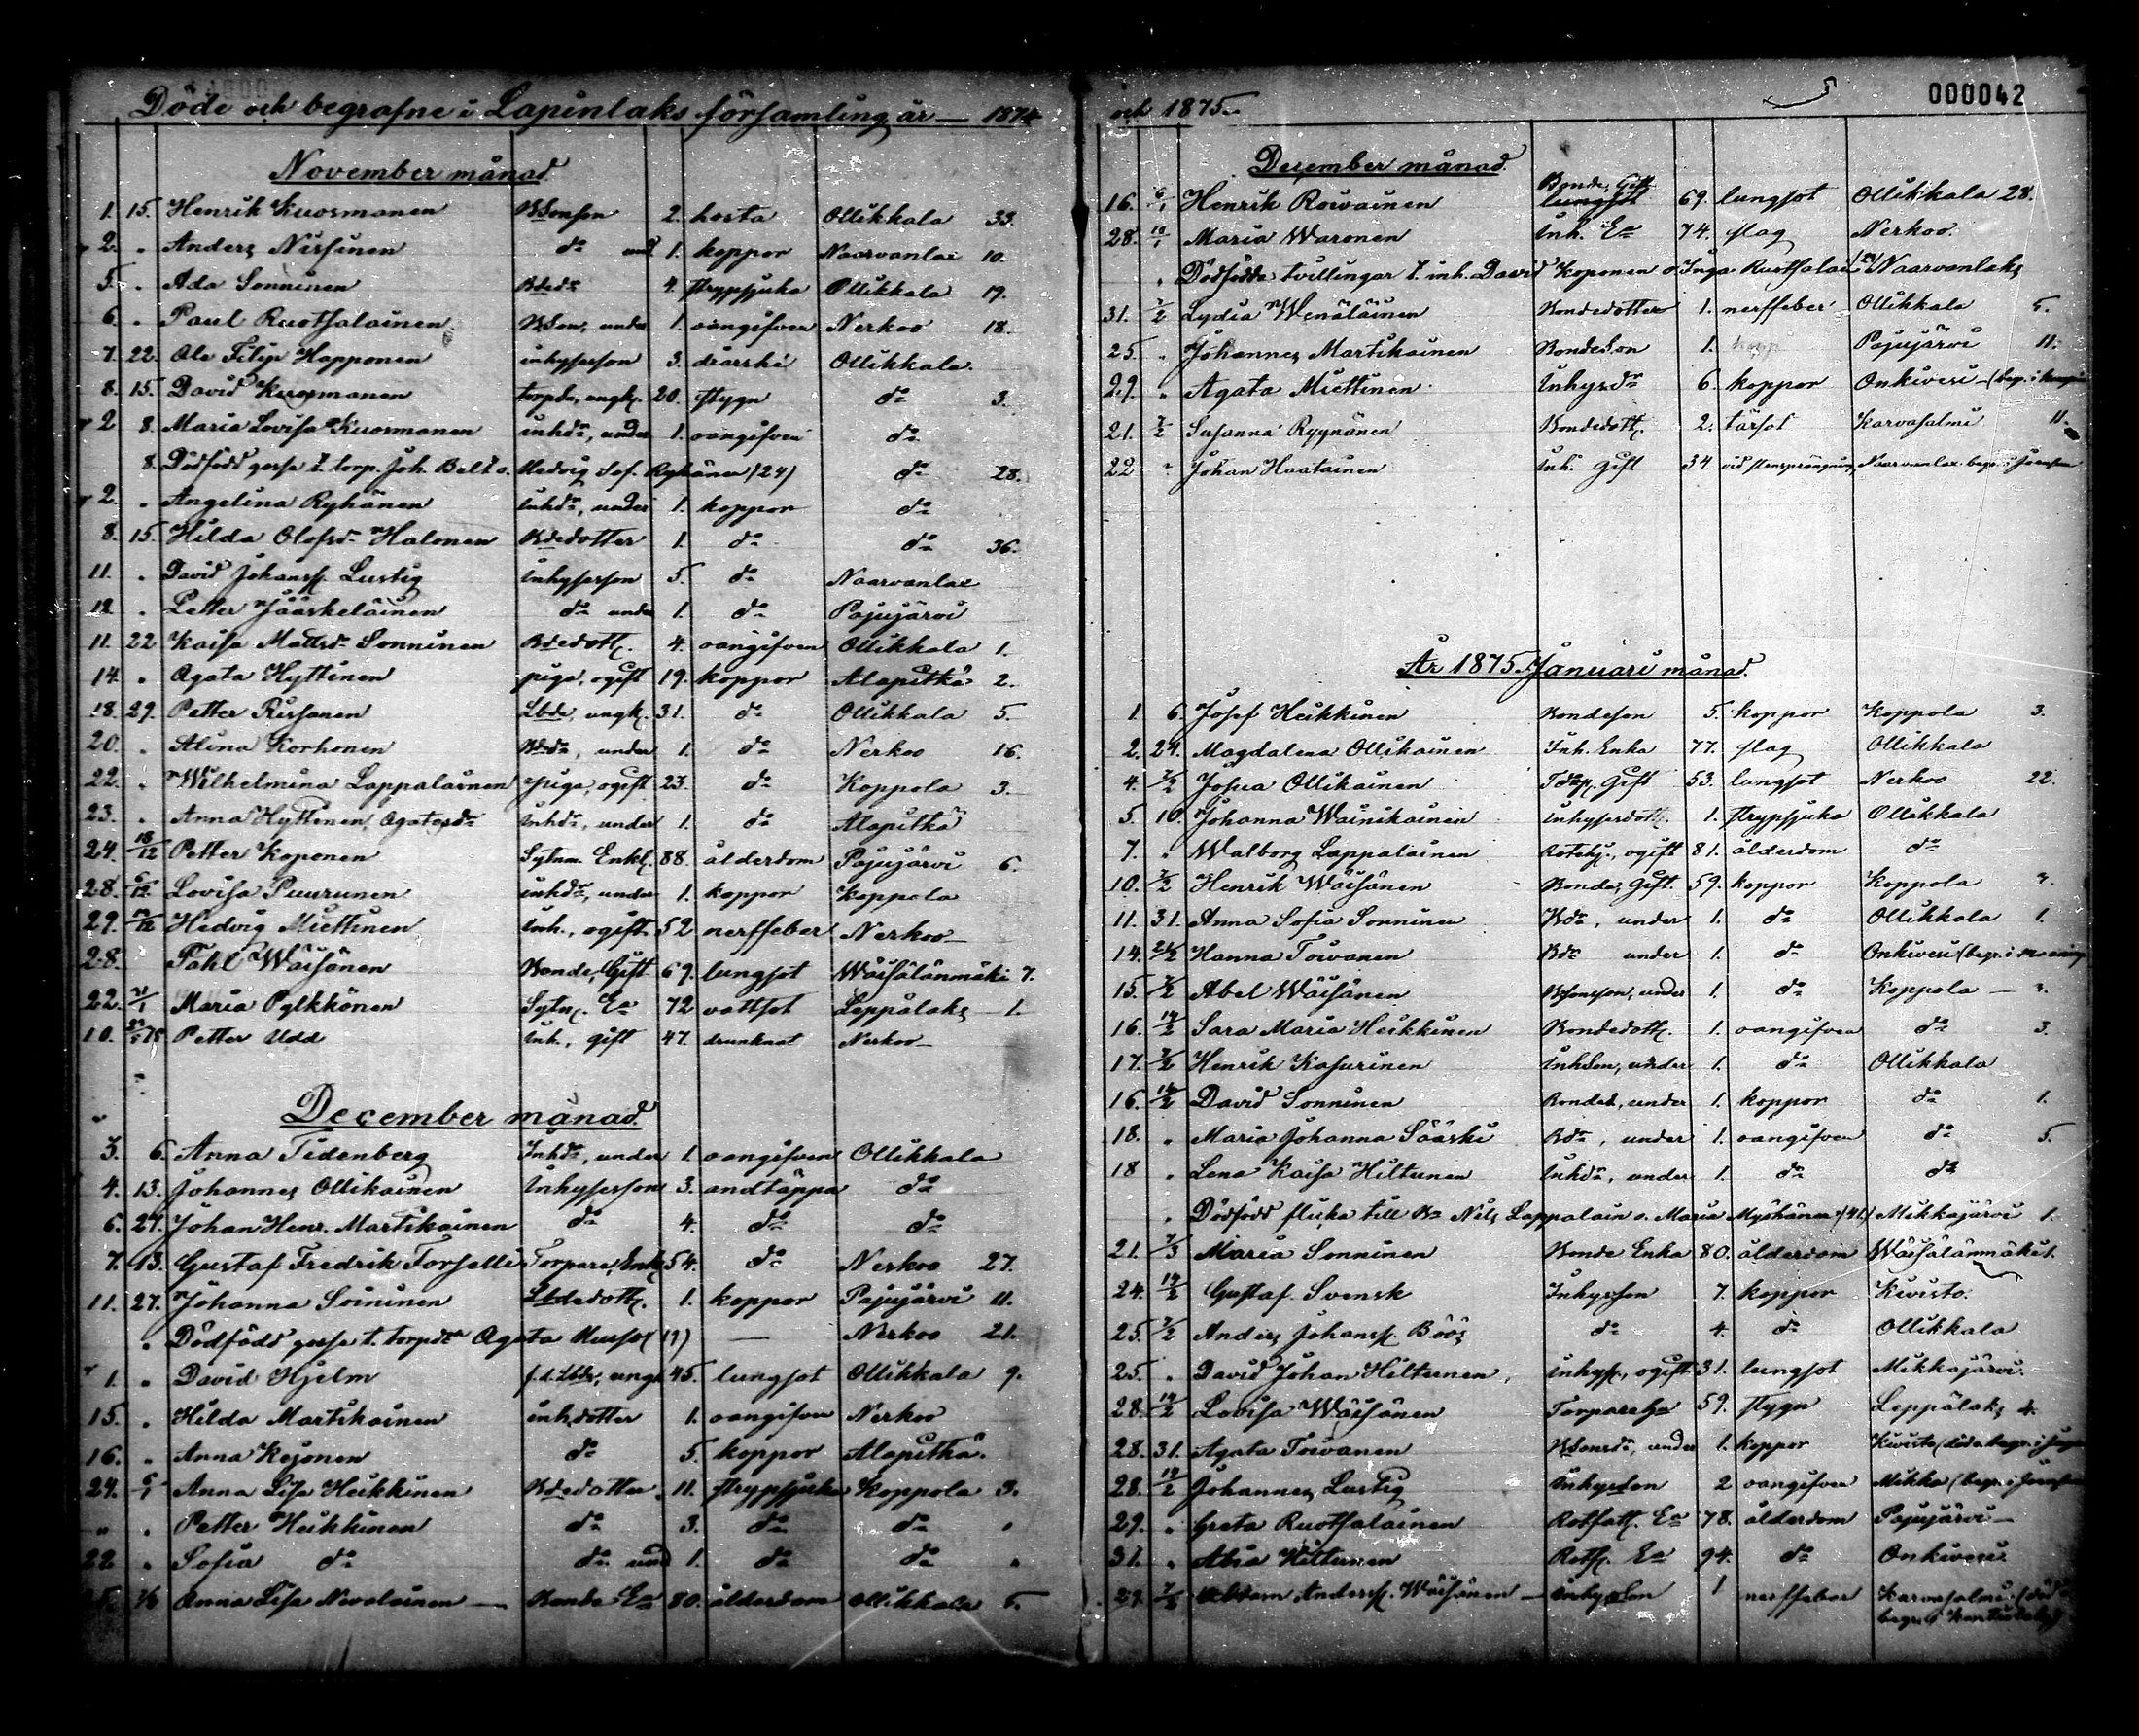 Döde och begrafne i Lapinlaks församling år — 1874
November månad.
1. 15. Henrik Kuosmanen BSonson 2. hosta Ollikkala 33.
2. " Anders Nissinen do und. 1. koppor Naarvanlax 10.
5. " Ada Sonninen Bdedr 4. strypsjuka Ollikkala 19.
6. " Paul Ruotsalainen BSon, under 1. oangifven Nerkoo 18.
7. 22. Ole Filip Happonen inhysesson 3. diarrhé Ollikkala.
8. 15. David Kuosmanen torpda, ungk. 20. stygn do 3.
2 8. Maria Lovisa Kuosmanen inhdr, under 1. oangifven do
8. Dödfödd gosse t. torp. Joh. Belt o. Hedvig Sof. Ryhänen (24) do 28.
2. " Angelina Ryhänen Inhdr, under 1. koppor do
8. 15. Hilda Olofsdr Halonen Bdedotter 1. do do 36.
11. " David Johanss. Lustig Inhysesson 5. do Naarvanlax
12 " Petter Jääskeläinen do under 1. do Pajujärvi
11. 22 Kaisa Mattsdr Sonninen Bdedott. 4. oangifven Ollikkala 1.
14. " Agata Hyttinen piga, ogift 19. koppor Alapitkä 2.
18. 29. Petter Rissanen Lbde, ungk. 31. do Ollikkala 5.
20. " Alina Korhonen Bdedr, under 1. do Nerkoo 16.
22. " Wilhelmina Lappalainen piga, ogift 23. do Koppola 3.
23. " Anna Hyttinen, Agatasdr Inhdr, under 1. do Alapitkä
24. 13/12 Petter Koponen Sytnm. Enkl. 88. ålderdom Pajujärvi 6.
28. 6/12 Lovisa Puurunen inhdr, under 1. koppor Koppola
29. 13/12 Hedvig Miettinen Inh., ogift 52 nerffeber Nerkoo —
28. Påhl Wäisänen Bonde, Gift 69. lungsot Wäisälänmäki 7.
22. 31/1 Maria Pylkkönen Sytn. Ea 72 vattsot Leppälaks — 1.
10. Petter Udd Inh., gift 47. drunknat Nerkoo —
December månad.
3. 6. Anna Tidenberg Inhdr, under 1. oangifven Ollikkala
4. 13. Johannes Ollikainen Inhysesson 3. andtäppa do
6. 27. Johan Henr. Martikainen do 4. do do
7. 13. Gustaf Fredrik Forsell Torpare, Enkl. 54. do Nerkoo 27.
11. 27. Johanna Soininen Lbdedott. 1. koppor Pajujärvi 11.
" Dödfödd gosse t. torpdra Agata Husso (19) — Nerkoo 21.
1. " David Hjelm f.d. Lbde, ungk. 45. lungsot Ollikkala 9.
15. " Hilda Martikainen inhdotter 1. oangifven Nerkoo
16. " Anna Kejonen do 5. koppor Alapitkä.
24. 6/1 Anna Lisa Heikkinen Bdedotter 11. strypsjuka Koppola 3.
" " Petter Heikkinen do 3. do do "
22 " Sofia do do und 1. do do "
Anna Lisa Nevalainen — Bonde Ea 80. ålderdom Ollikkala 5.
och 1875.
000042
December månad.
16. 6/1 Henrik Roivainen Bonde, Gift 69. lungsot Ollikkala 28.
28. 10/1 Maria Waronen Inh. Ea 74. slag Nerkoo.
" Dödfödda tvillingar t. inh. David Koponen o. Inga Ruotsalai Naarvanlaks
31. 2/2 Lydia Wenäläinen Bondedotter 1. nerffeber Ollikkala 5.
25. " Johannes Martikainen BondeSon 1. kopp Pajujärvi 11.
29. " Agata Miettinen Inhysdr 6. koppor Onkivesi —
21. 7/2 Susanna Ryynänen Bondedott. 2. tärsot Karvasalmi 11.
22 " Johan Haatainen Inh. gift 34. vid stensprängning, Naarvanlax.
År 1875. Januari månad.
1 6. Josef Heikkinen Bondeson 5. koppor Koppola 3.
2. 24. Magdalena Ollikainen Inh. Enka 77. slag Ollikkala
4. 7/2 Josua Ollikainen Torp. Gift 53. lungsot Nerkoo 22.
5. 10. Johanna Wainikainen Inhysesdott. 1. strypsjuka Ollikkala
7. " Walborg Lappalainen Rotehj., ogift 81. ålderdom do
10. 7/2 Henrik Wäisänen Bonde, Gift. 59. koppor Koppola 3.
11. 31. Anna Sofia Sonninen Bdr, under 1. do Ollikkala 1.
14. 21/2 Hanna Toivanen Bdr under 1. do Onkivesi (begr. i Maaninga
15. 7/2 Abel Wäisänen BSonson, under 1. do Koppola — 3.
16. 14/2 Sara Maria Heikkinen Bondedott. 1. oangifven do 3.
17. 7/2 Henrik Kasurinen InhSon, under 1. do Ollikkala
16. 14/2 David Sonninen Bondes, under 1. koppor do 1.
18. " Maria Johanna Sääski Bdr, under 1. oangifven do 5.
18 " Lena Kaisa Hiltunen Inhdr, under 1. do do
" Dödfödd flicka till Bn Nils Lappalain o. Maria Myöhänen (41) Mikkajärvi 1.
21. 7/3 Maria Sonninen Bonde Enka 80. ålderdom Wäisälänmäki 1.
24. 14/2 Gustaf Svensk Inhysson 7. koppor Kivistö.
25. 7/2 Anders Johanss. Böös do 4. do Ollikkala
25. " David Johan Hiltunen, Inhys., ogift 31. lungsot Mikkajärvi.
28. 14/2 Lovisa Wäisänen Torpareha 59. stygn Leppälaks 4.
28. 31. Agata Toivanen BSonsdr, under 1. koppor Kivistö
28. 14/2 Johannes Lustig Inhysson 2 oangifven Mikka
29. " Greta Ruotsalainen Rotfatt. Ea 78. ålderdom Pajujärvi —
31. " Abia Hiltunen Rotf. Ea 94. do Onkivesi.
29. Anderss. Wäisänen — InhysSon 1 nerffeber Karvasalmi. (död o
begr. i